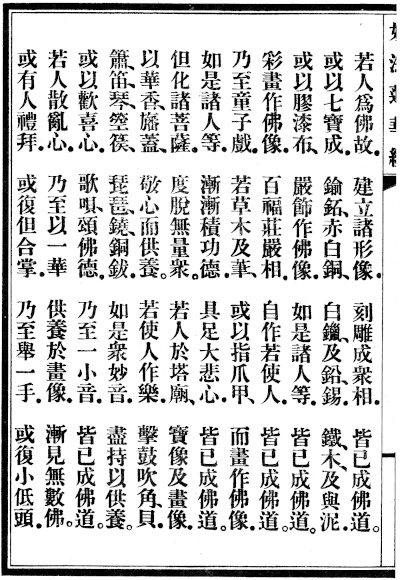 妙法蓮華經
若人爲佛故.建立諸形像.刻雕成衆相.皆已成佛道。
或以七寶成.鍮鉐赤白銅、白鑞及鉛錫、鐵木及與泥.
或以膠漆布、嚴飾作佛像.如是諸人等.皆已成佛道。
彩畫作佛像.百福莊嚴相.自作若使人.皆已成佛道。
乃至童子戲.若草木及筆.或以指爪甲、而畫作佛像.
如是諸人等.漸漸積功德.具足大悲心.皆已成佛道。
但化諸菩薩.度脫無量衆.若人於塔廟、寶像及畫像.
以華香旛蓋、敬心而供養。若使人作樂.擊鼓吹角、貝、
簫笛琴箜篌、琵琶鐃銅鈸、如是衆妙音.盡持以供養.
或以歡喜心.歌唄頌佛德.乃至一小音.皆已成佛道。
若人散亂心.乃至以一華.供養於畫像.漸見無數佛。
或有人禮拜.或復但合掌.乃至舉一手.或復小低頭.